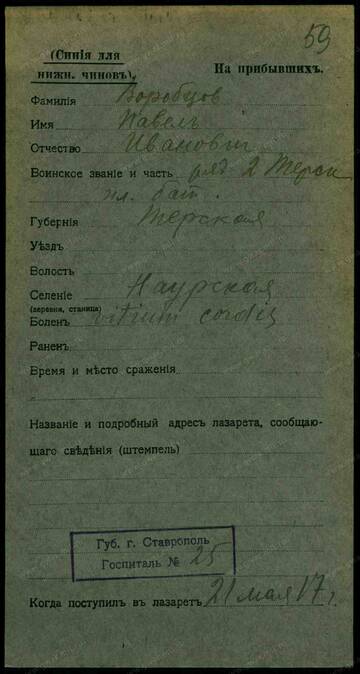 59
(Синія для
нижн. чиновъ).
На прибывшихъ.
Фамилія Воробцов
Имя Павелъ
Отчество Иванович
Воинское званіе и часть ряд 2 Терск
пл. бат.
Губернія Терская
Уѣздъ
Волость
Селеніе Наурская
(деревня, станица)
Боленъ vitium cordis
Раненъ
Время и мѣсто сраженія
Названіе и подробный адресъ лазарета, сообщаю-
щаго свѣдѣнія (штемпель)
Губ. г. Ставрополь
Госпиталь № 25
Когда поступилъ въ лазаретъ 21 мая 17 г.